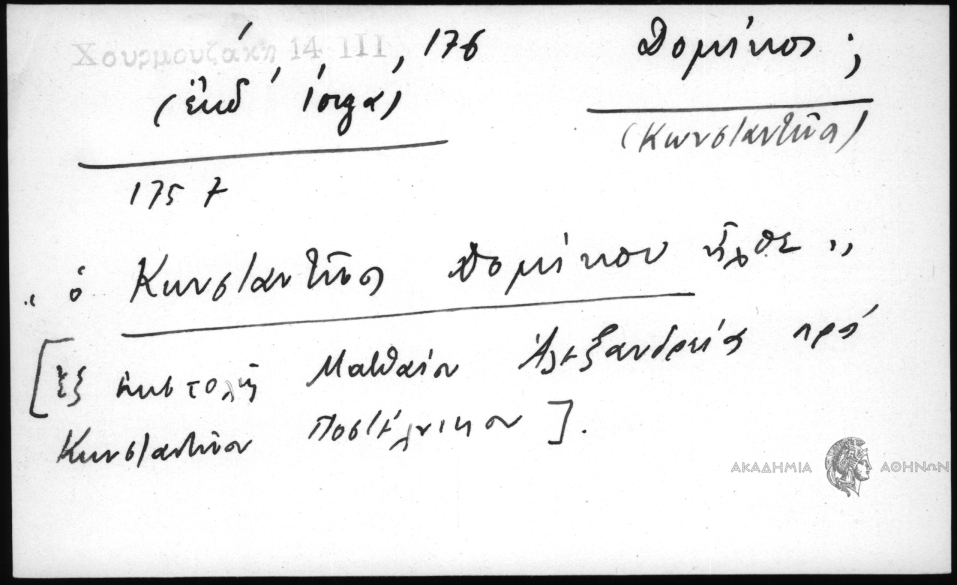 Χουρμουζάκη 14 III, 176
Δομίνικος;
(Κωνσταντῖνος)
1757
" ὁ Κωνσταντῖνος Δομίνικου ἦλθε "
[ἐξ ἐπιστολῆς Ματθαίου Ἀλεξανδρείας πρὸς
Κωνσταντῖνον Ποστέλνικον].
ΑΚΑΔΗΜΙΑ ΑΘΗΝΩΝ